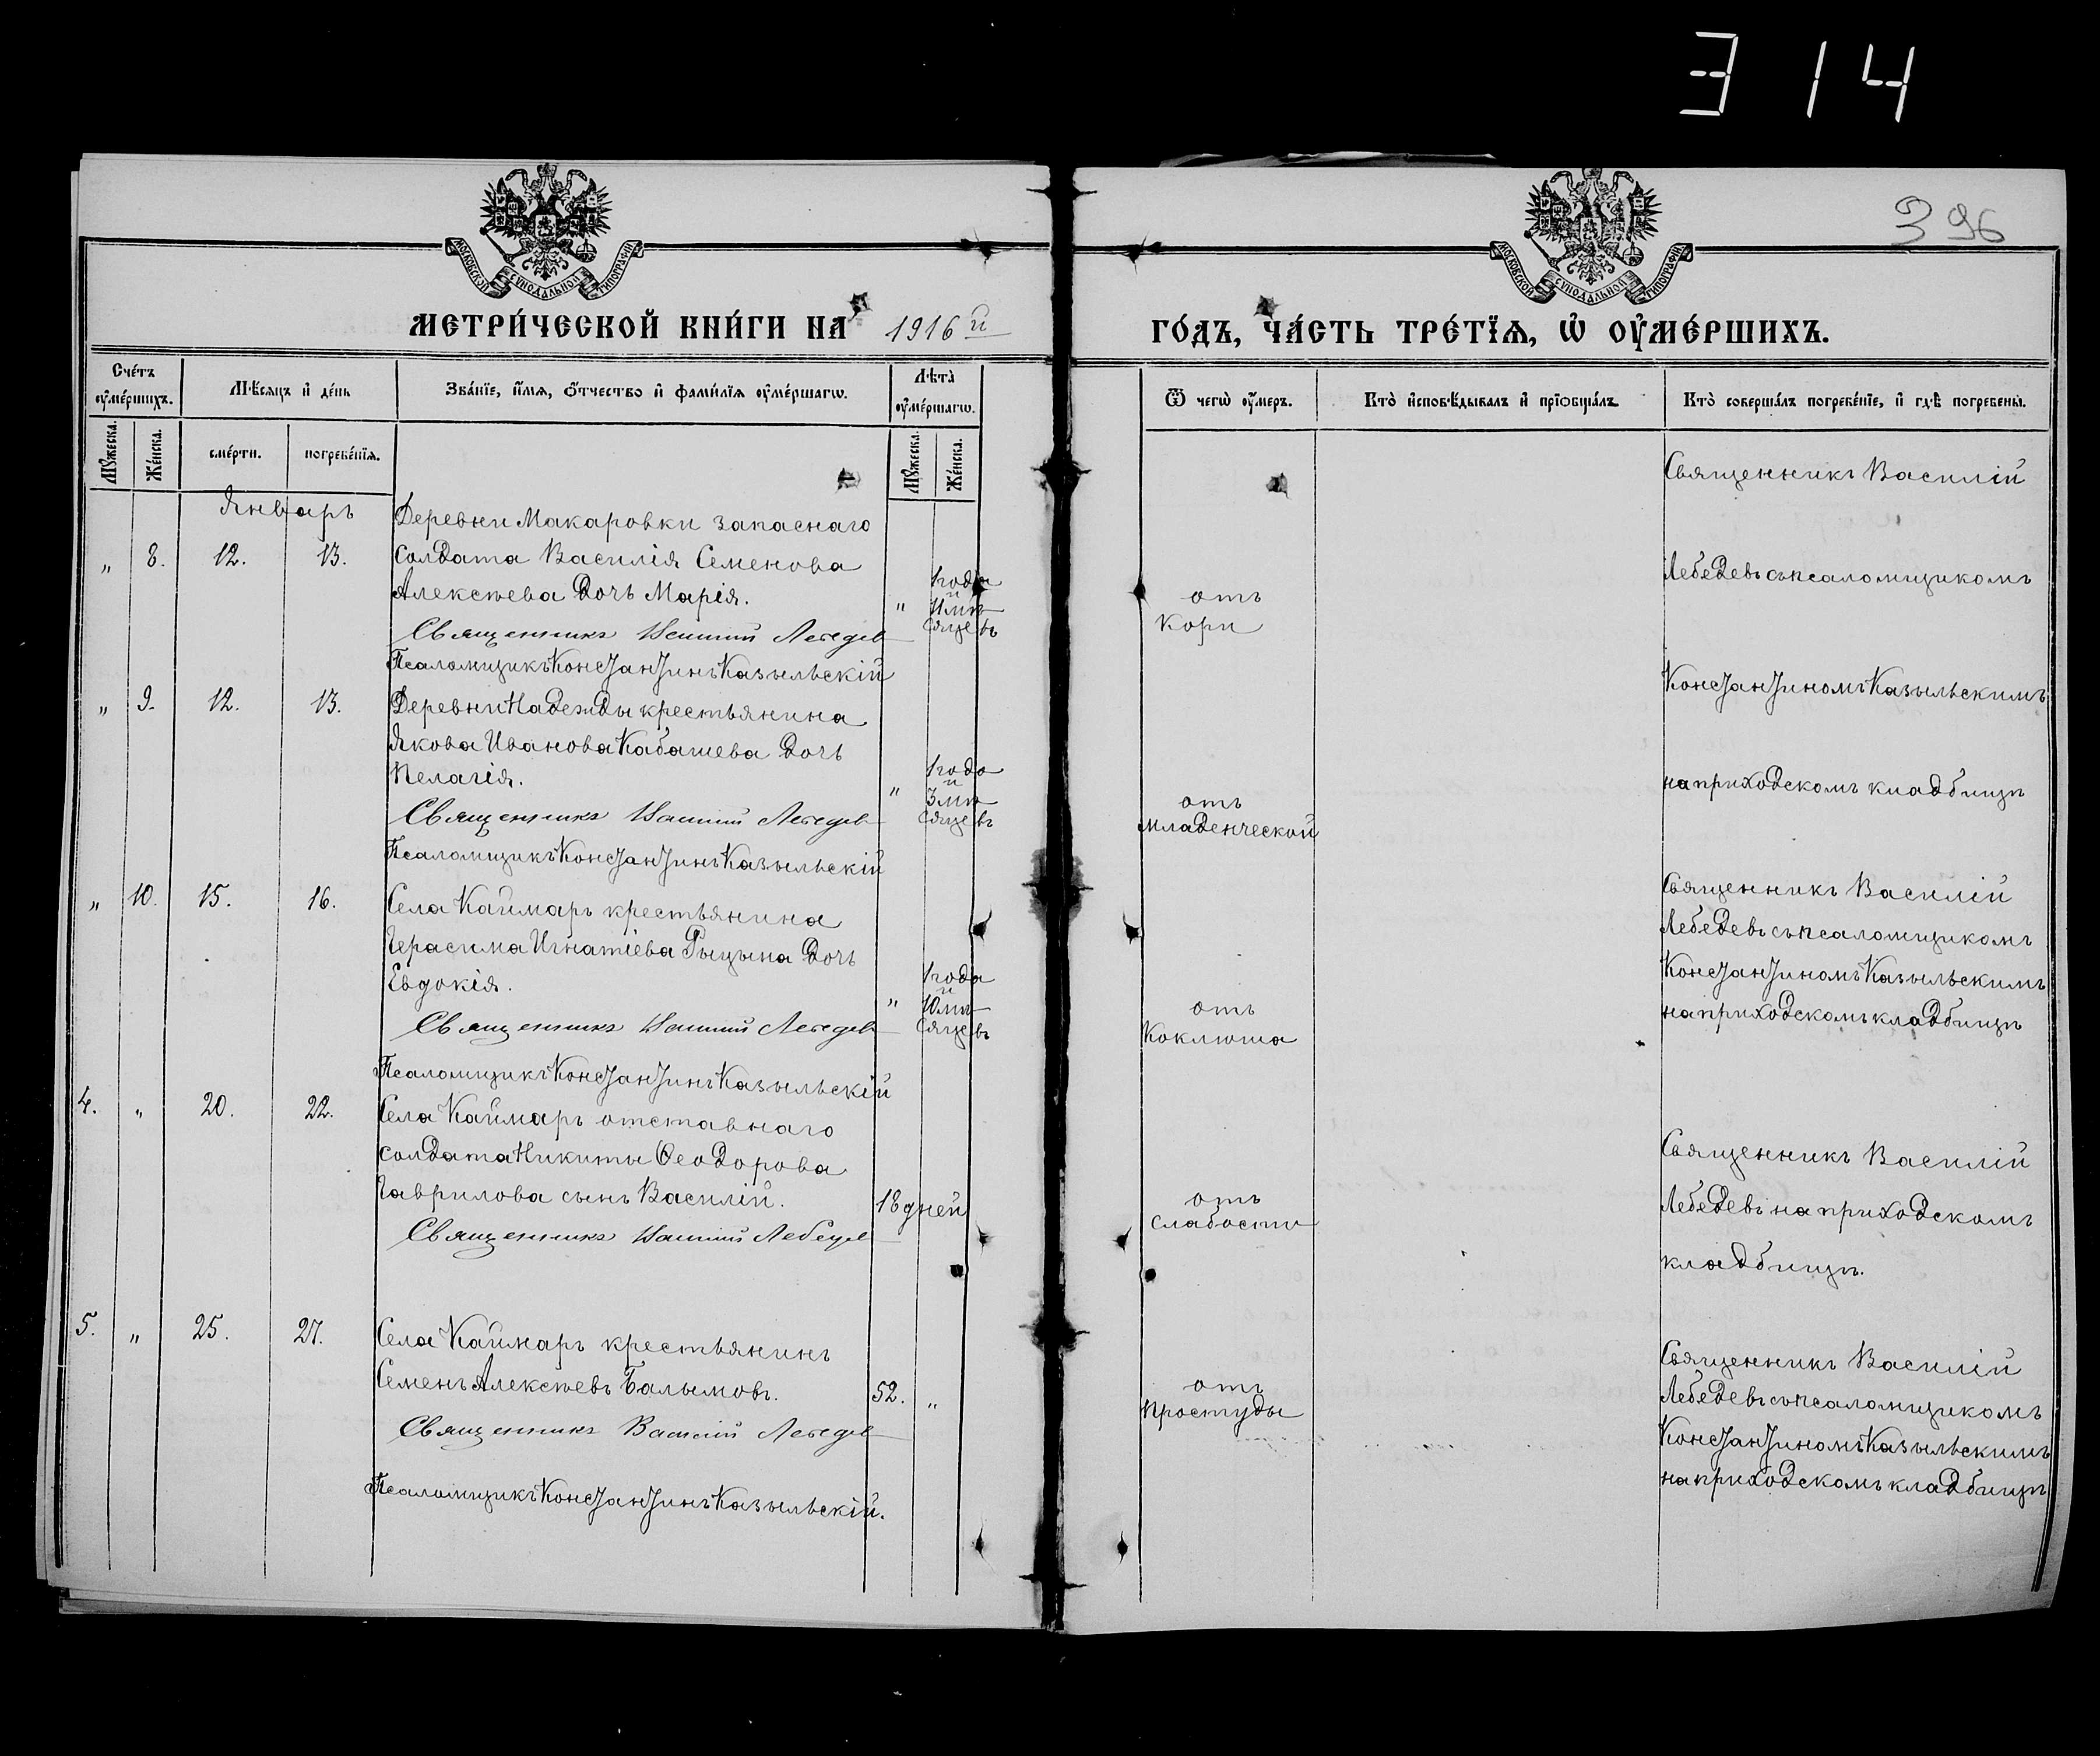 314
396
МОСКОВСКОЙ СѴНОДАЛЬНОЙ ТИПОГРАФІИ
МОСКОВСКОЙ СѴНОДАЛЬНОЙ ТИПОГРАФІИ
МЕТРИ́ЧЕСКОЙ КНИ́ГИ НА 1916 й
ГО́ДЪ, ЧА́СТЬ ТРЕ́ТЇѦ, Ѡ҆ ОУ҆МЕ́РШИХЪ.
Сче́тъ оу҆ме́ршихъ.
Мѣ́сѧцъ и҆ де́нь
Зва́нїе, и҆́мѧ, ѻ҆́тчество и҆ фами́лїѧ оу҆ме́ршагѡ.
Лѣ́та оу҆ме́ршагѡ.
Ѿ чегѡ̀ оу҆́меръ.
Кто̀ и҆сповѣ́дывалъ и҆ прїѡбща́лъ
Кто̀ соверша́лъ погребе́нїе, и҆ гдѣ̀ погребены̀.
Мꙋ́жеска.
Же́нска.
сме́рти.
погребе́нїѧ.
Мꙋ́жеска.
Же́нска.
Январь
„ 8. 12. 13.
Деревни Макаровки запаснаго
солдата Василія Семенова
Алексѣева дочь Марія.
Священникъ Василий Лебедев
Псаломщикъ Константинъ Казыльскій
„ 1 года
и
11 мѣ
сяцевъ
отъ
Кори
Священникъ Василій
Лебедевъ съ псаломщикомъ
Константиномъ Казыльскимъ
на приходскомъ кладбищѣ
„ 9. 12. 13.
Деревни Надежды крестьянина
Якова Иванова Кабашева дочь
Пелагія.
Священникъ Василий Лебедев
Псаломщикъ Константинъ Казыльскій
„ 1 года
и
3 мѣ
сяцевъ
отъ
младенческой
„ 10. 15. 16.
Села Каймаръ крестьянина
Герасима Игнатіева Рыцына дочь
Евдокія.
Священникъ Василий Лебедев
Псаломщикъ Константинъ Казыльскій
„ 1 года
и
10 мѣ
сяцевъ
отъ
Коклюша
Священникъ Василій
Лебедевъ съ псаломщикомъ
Константиномъ Казыльскимъ
на приходскомъ кладбищѣ
4. „ 20. 22.
Села Каймаръ отставнаго
солдата Никиты Ѳеодорова
Гаврилова сынъ Василій.
Священникъ Василий Лебедев
18 дней
отъ
слабости
Священникъ Василій
Лебедевъ на приходскомъ
кладбищѣ.
5. „ 25. 27.
Села Каймаръ крестьянинъ
Семенъ Алексѣевъ Балымовъ.
Священникъ Василий Лебедев
Псаломщикъ Константинъ Казыльскій.
52. „
отъ
Простуды
Священникъ Василій
Лебедевъ съ псаломщикомъ
Константиномъ Казыльскимъ
на приходскомъ кладбищѣ